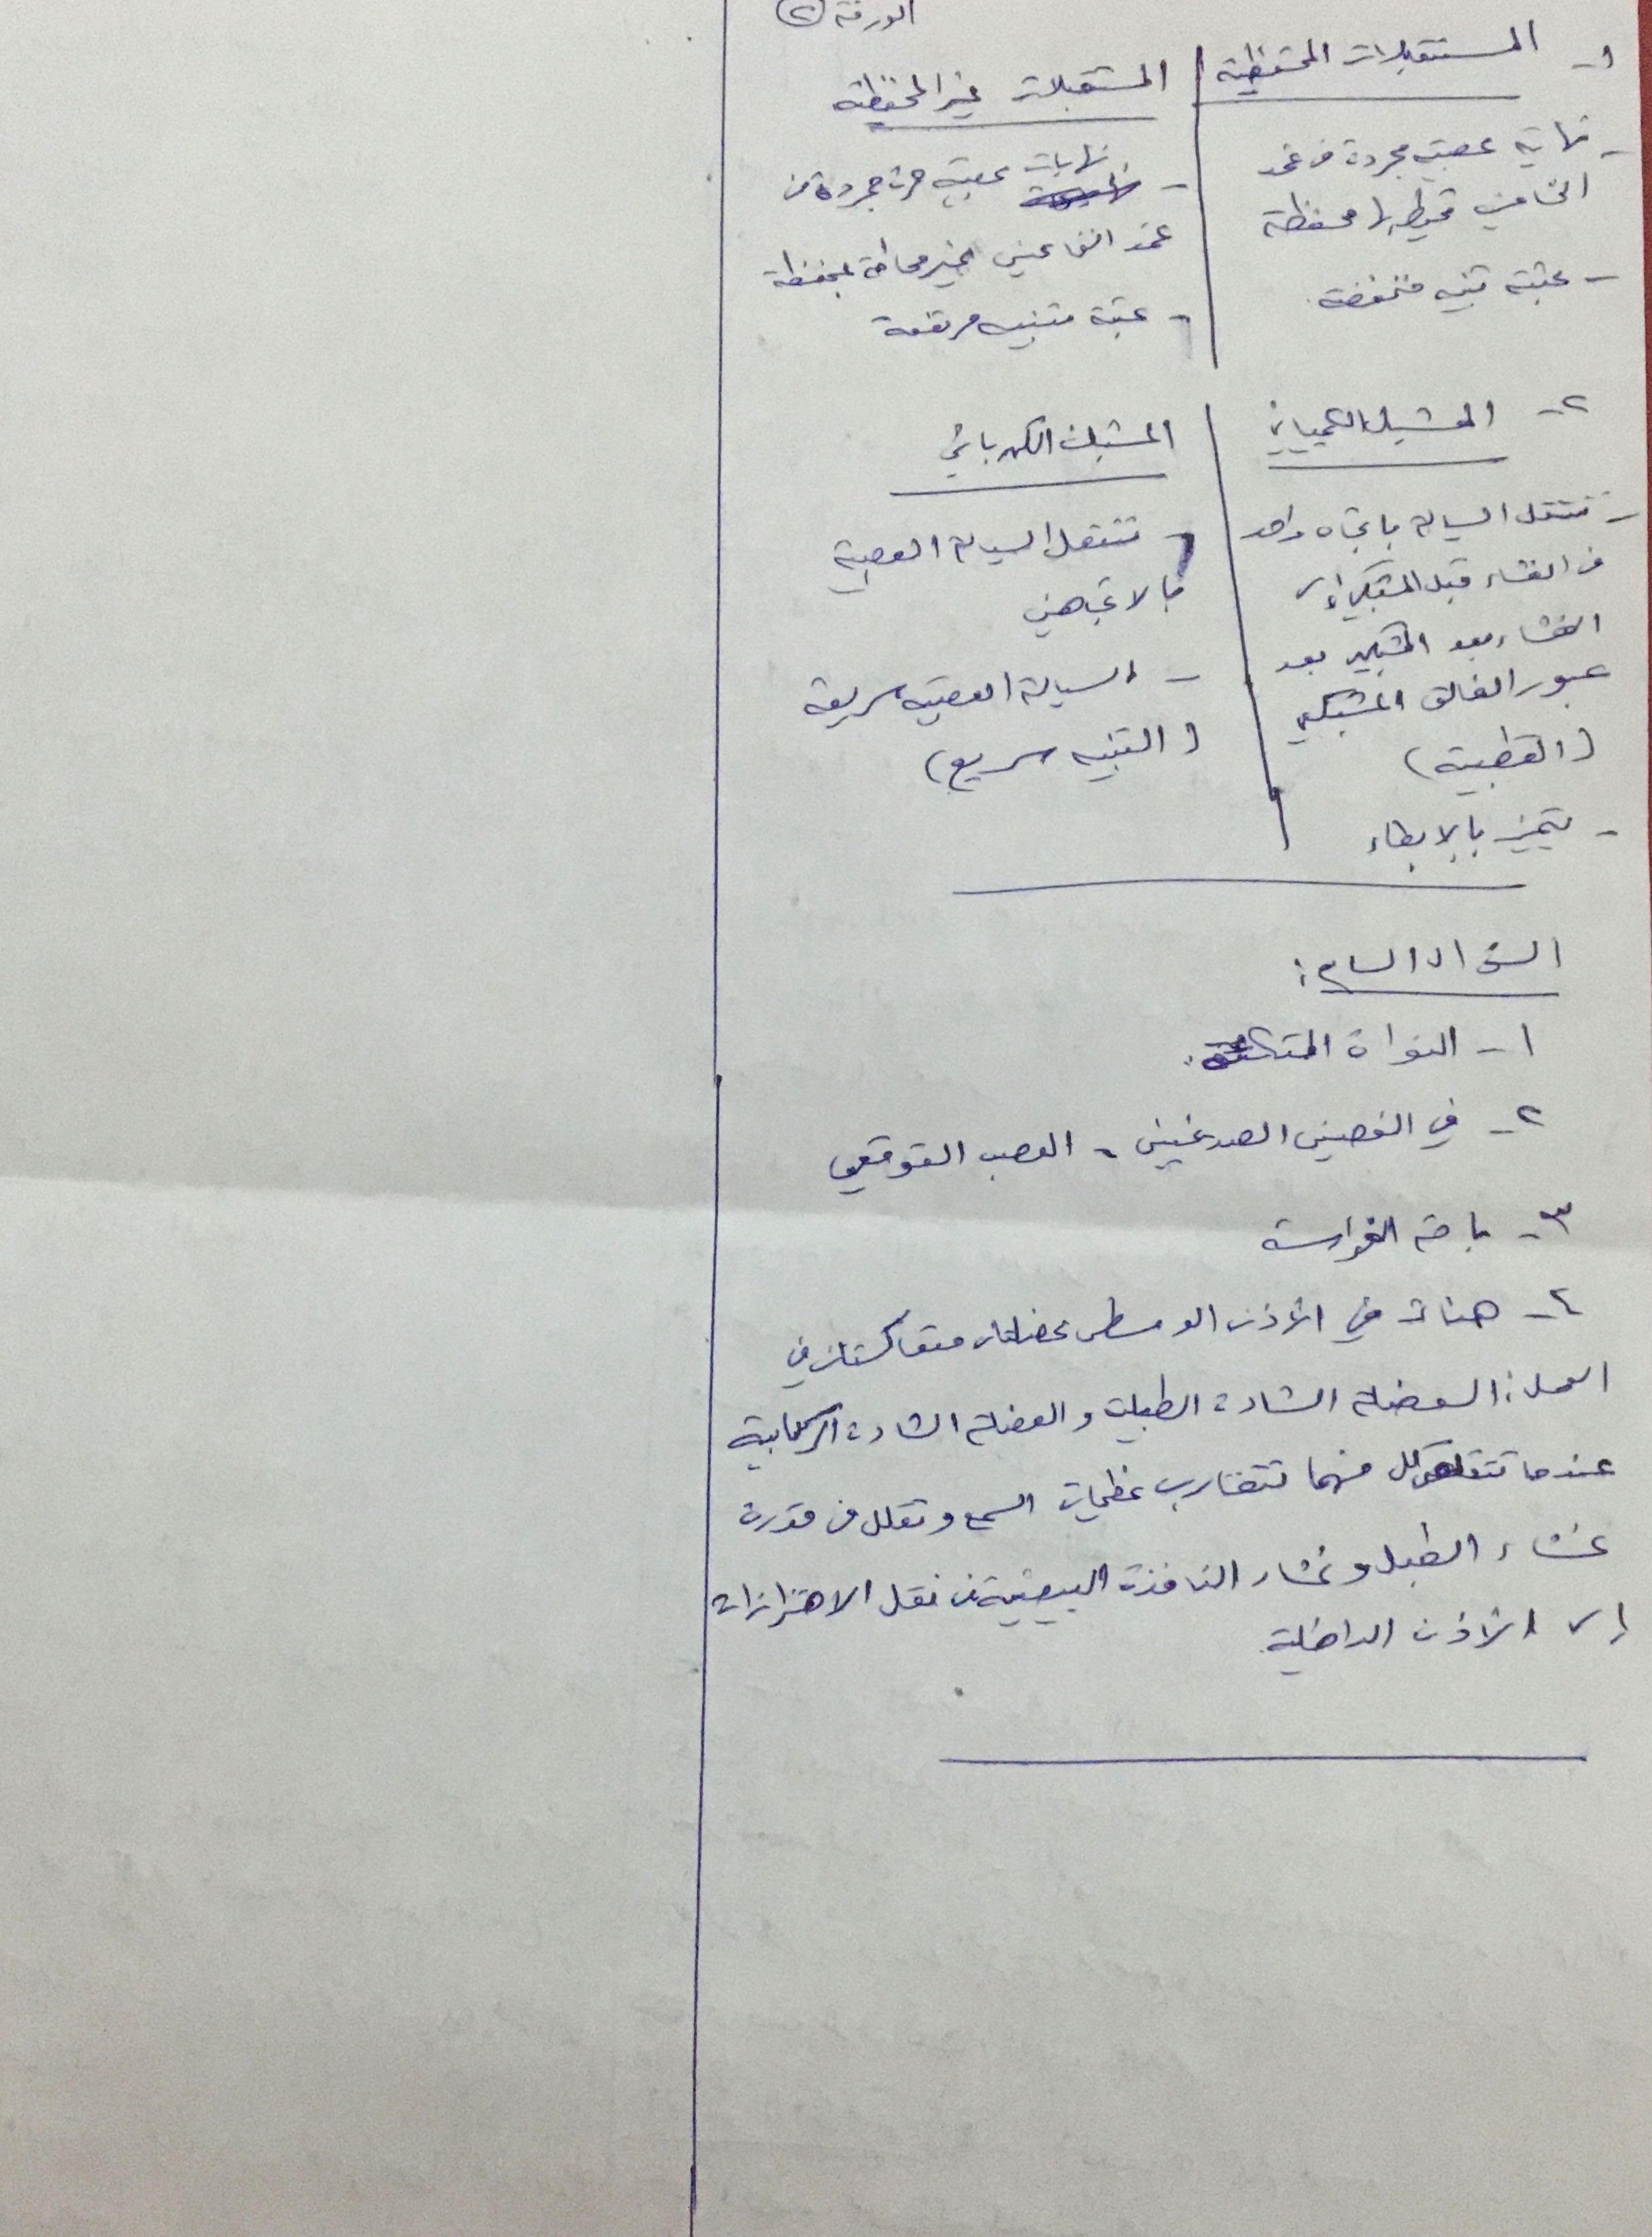 الورقة (٢)
١- المستقبلات المحفظية
المستقبلات غير المحفظية
- نهاية عصبية مجردة من غمد
النخاعين تحيط بها محفظة
- عتبة تنبيه منخفضة.
- نهايات عصبية حرة مجردة من
غمد النخاعين غير محاطة بمحفظة
- عتبة تنبيه مرتفعة
٢- المشبك الكيميائي
المشبك الكهربائي
- تنتقل السيالة باتجاه واحد
من الغشاء قبل المشبكي إلى
الغشاء بعد المشبكي بعد
عبور الفالق المشبكي
(القطبية)
- يتميز بالإبطاء
- تنتقل السيالة العصبية
بالاتجاهين
- السيالة العصبية سريعة
(التنبيه سريع)
السؤال السابع:
١- النواة
٢- في الفصين الصدغيين - العصب القوقعي
٣- باحة الفراسة
٤- هناك في الأذن الوسطى عضلتان متعاكستان في
العمل: العضلة الشادة الطبلية والعضلة الشادة الركابية
عندما تتقلص كل منهما تتقارب عظيمات السمع وتقلل من قدرة
غشاء الطبل وغشاء النافذة البيضية من نقل الاهتزازات
إلى الأذن الداخلية.